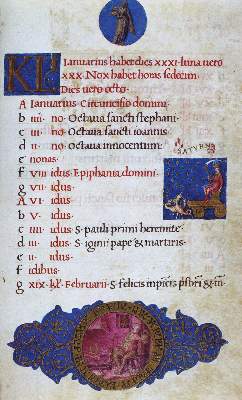 KL Ianuarius habet dies XXXI. luna uero
XXX. Nox habet horas sedecim.
Dies uero octo.
A Ianuarius. Circuncisio domini.
b iiii. no. Octaua sancti stephani
c iii. no. Octaua sancti ioannis
d ii. no. Octaua innocentum.
e nonas.
f VIII idus. Epiphania domini.
g VII. idus.
A VI. idus
b V. idus
c iiii. idus. S. pauli primi heremite.
d iii. idus. S. igini pape & martiris.
e ii. idus.
f idibus.
g XIX. kl. Februarii. S. felicis
SATVRNO